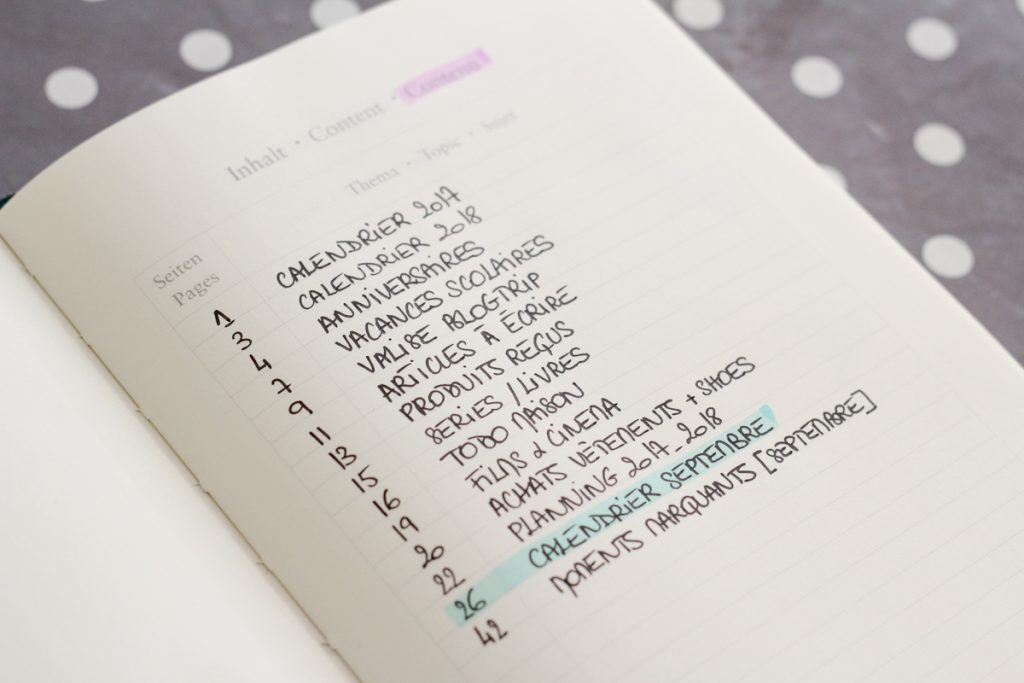 Inhalt · Content · Contenu
Thema · Topic · Sujet
Seiten
Pages
1 CALENDRIER 2017
3 CALENDRIER 2018
4 ANNIVERSAIRES
7 VACANCES SCOLAIRES
9 VALISE BLOGTRIP
11 ARTICLES À ÉCRIRE
13 PRODUITS REÇUS
15 SERIES / LIVRES
16 TODO MAISON
19 FILMS & CINEMA
20 ACHATS VÊTEMENTS + SHOES
22 PLANNING 2017_2018
26 CALENDRIER SEPTEMBRE
42 MOMENTS MARQUANTS [SEPTEMBRE]